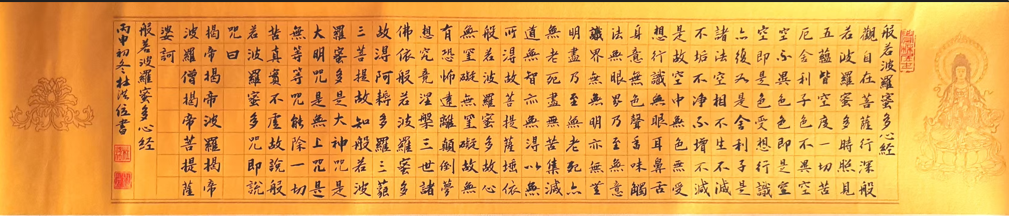 般若波羅蜜多心經
觀自在菩薩行深般
若波羅蜜多時照見
五蘊皆空度一切苦
厄舍利子色不異空
空不異色色即是空
空即是色受想行識
亦復如是舍利子是
諸法空相不生不滅
不垢不淨不增不減
是故空中無色無受
想行識無眼耳鼻舌
身意無色聲香味觸
法無眼界乃至無意
識界無無明亦無無
明盡乃至無老死亦
無老死盡無苦集滅
道無智亦無得以無
所得故菩提薩埵依
般若波羅蜜多故心
無罣礙無罣礙故無
有恐怖遠離顛倒夢
想究竟涅槃三世諸
佛依般若波羅蜜多
故得阿耨多羅三藐
三菩提故知般若波
羅蜜多是大神咒是
大明咒是無上咒是
無等等咒能除一切
苦真實不虛故說般
若波羅蜜多咒即說
咒曰
揭帝揭帝波羅揭帝
波羅僧揭帝菩提薩
婆訶
般若波羅蜜多心經
丙申初冬杜書